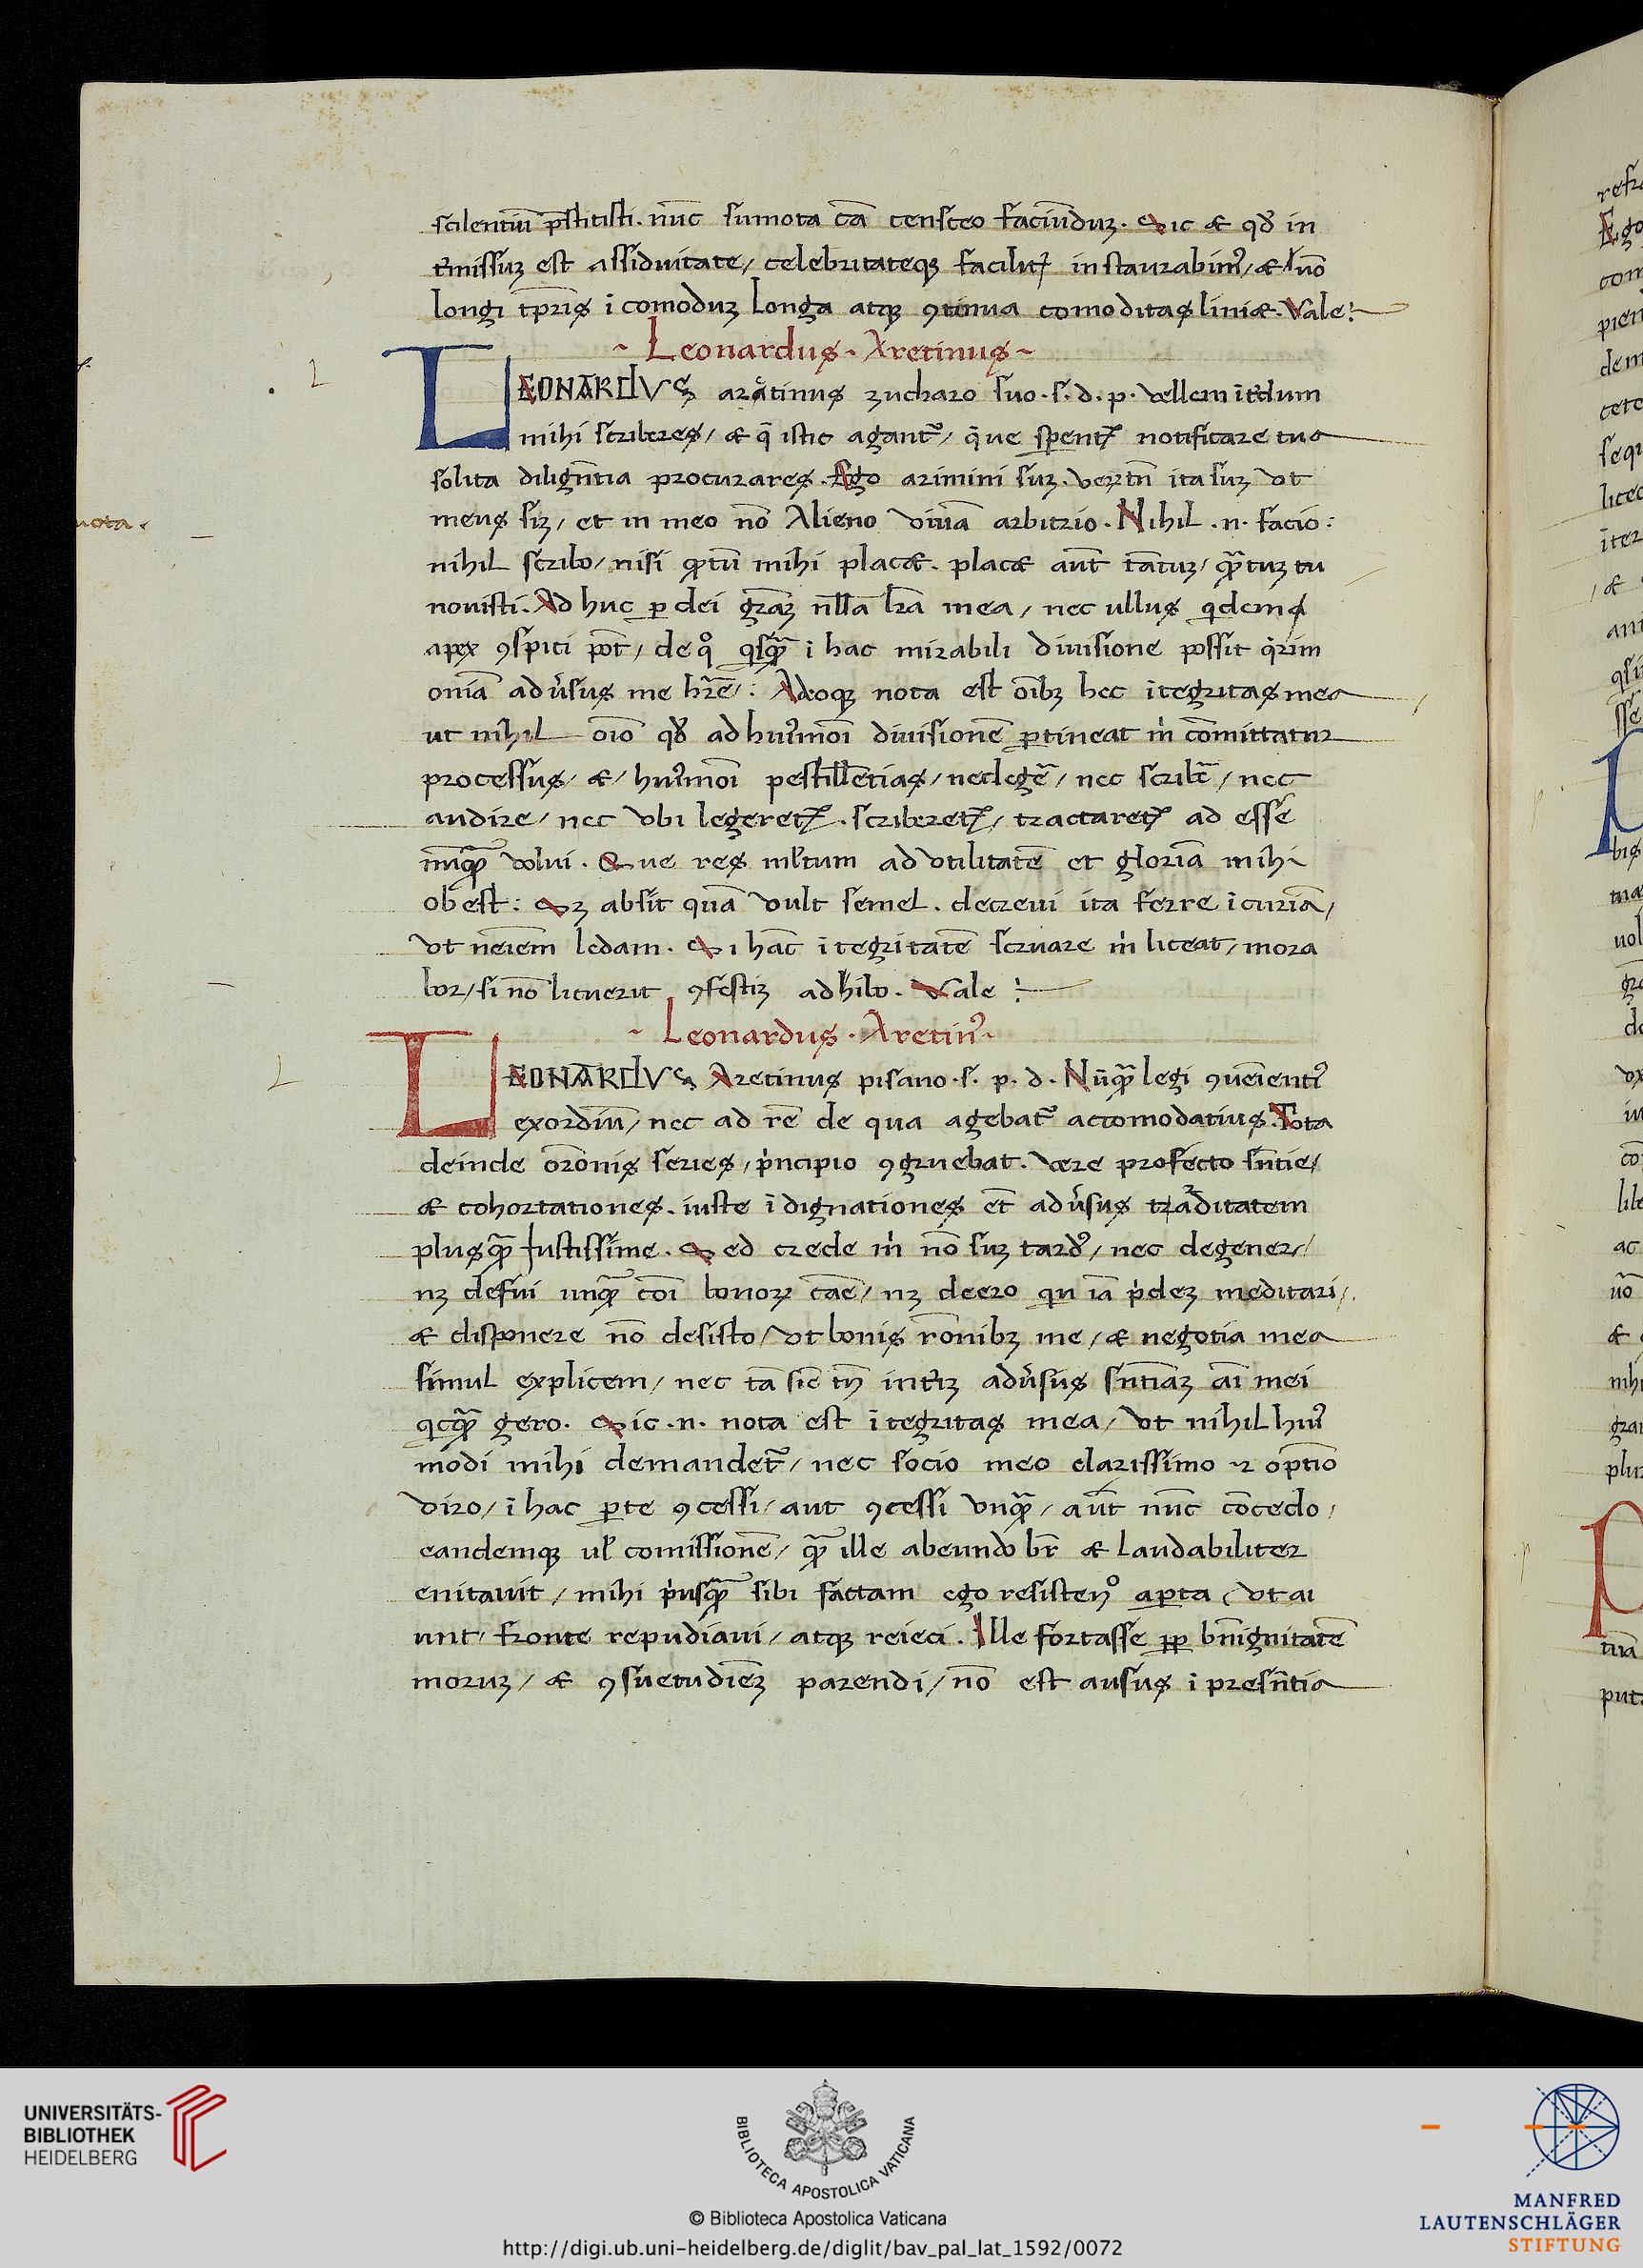 scilentiū p̄stitisti. nūc sumota cā censceo faciūduȝ. Sic & qd' in
t'missuȝ est assiduitate / celebritateqȝ facilit' instaurabim' / & suo
longi tp̄ris ī comoduȝ longa atqȝ ꝯtinua comoditas liniæ. Vale:
~ Leonardus · Aretinus ~
LEONARDVS aretinus zucharo suo · s. d. p. vellem īt'dum
mihi scriberes / & q̄ istic agant' / q̄ue sperent' notificare tua
solita dilign̄tia procurares. Ego arimini suȝ. verȝtn̄ ita suȝ vt
meus siȝ / et in meo nō Alieno viuā arbitrio. Nihil .n. facio:
nihil scribo / nisi qͣtū mihi placæ. placæ aūt tātuȝ / qͣtuȝ tu
nouisti. Ad huc ꝑ dei grāȝ nll̄a lr̄a mea / nec ullus qͥdem
apex ꝯspici pōt / de qͦ qͥsqͣ ī hac mirabili diuisione possit qͥrim
oniā adu'sus me hr̄e /: Adeoqȝ nota est oībȝ hec ītegritas mea
ut nihil oīo qd' ad hui'moī diuisionē ꝑtineat m̍ cōmittatur
processus / & / hui'moī pestill̄etias / neclegē / nec scribē / nec
audire / nec vbi legeret'. scriberet' / tractaret' ad esse
nūqͣ volui. Que res ml'tum ad vtilitatē et gloriā mihi
obest: Sȝ absit quā vult semel. decreui ita ferre īcuriā /
vt neīem ledam. Si hāc ītegritatē seruare m̍ liceat / mora
bor / si nō licuerit ꝯfestiȝ adhibo. Vale :
~ Leonardus · Aretin' ~
LEONARDVS Aretinus pisano · s. p. d. Nūqͣ legi ꝯueīenti'
exordiū / nec ad rē de qua agebat' accomodatius. Tota
deinde orōnis series / pͥncipio ꝯgruebat. vere profecto sn̄tie /
& cohortationes. iuste īdignationes et̄ adu'sus tarditatem
plusqͣ Iustissime. Sed crede m̍ nō suȝ tard' / nec degener /
nȝ defui unqͣ coī bonoꝝ cāe / nȝ deero qn iā pͥdeȝ meditari /
& disponere nō desisto / vt bonis rōnibȝ me / & negotia mea
simul explicem / nec tā sic tn̄ int'iȝ adu'sus sn̄tiāȝ aī mei
qͥcqͣ gero. Sic .n. nota est ītegritas mea / vt nihil hui'
modi mihi demandet' / nec socio meo clarissimo ⁊ optīo
viro / ī hac ꝑte ꝯcessi / aut ꝯcessi vnqͣ / aūt nūc cōcedo /
eandemqȝ ul' comissionē / qͣ ille abeundo br̄ & laudabiliter
enitauit / mihi pͥusqͣ sibi factam ego resistenº aꝑta / vt ai
unt / fronte repudiaui / atqȝ reieci. Ille fortasse ꝓꝑ bn̄ignitatē
moruȝ / & ꝯsuetudīeȝ parendi / nō est ausus ī presn̄tia
nota.
UNIVERSITÄTS-
BIBLIOTHEK
HEIDELBERG
BIBLIOTECA APOSTOLICA VATICANA
© Biblioteca Apostolica Vaticana
http://digi.ub.uni-heidelberg.de/diglit/bav_pal_lat_1592/0072
MANFRED
LAUTENSCHLÄGER
STIFTUNG